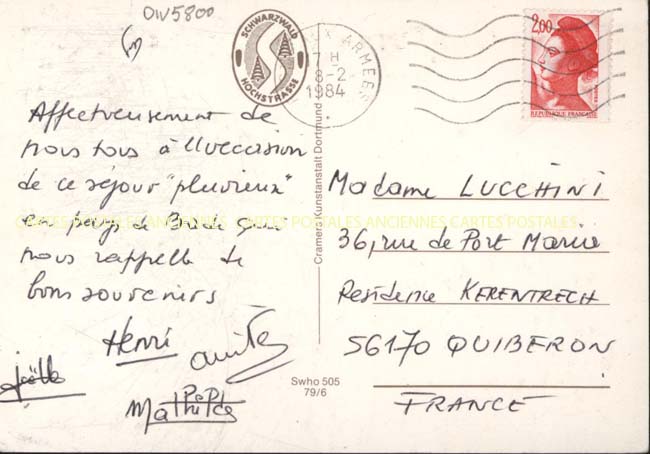 OW5800
SCHWARZWALD
HOCHSTRASSE
ARMEES
17 H
8-2
1984
2,00
REPUBLIQUE FRANÇAISE
Affectueusement de
nous tous à l'occasion
de ce séjour "pluvieux"
en pays de Bade qui
nous rappelle de
bons souvenirs
Henri
Joëlle
Mathilde
Cramers Kunstanstalt Dortmund
Swho 505
79/6
Madame LUCCHINI
36, rue de Port Maria
Residence KERENTRECH
56170 QUIBERON
FRANCE
CARTES POSTALES ANCIENNES CARTES POSTALES ANCIENNES CARTES POSTALES